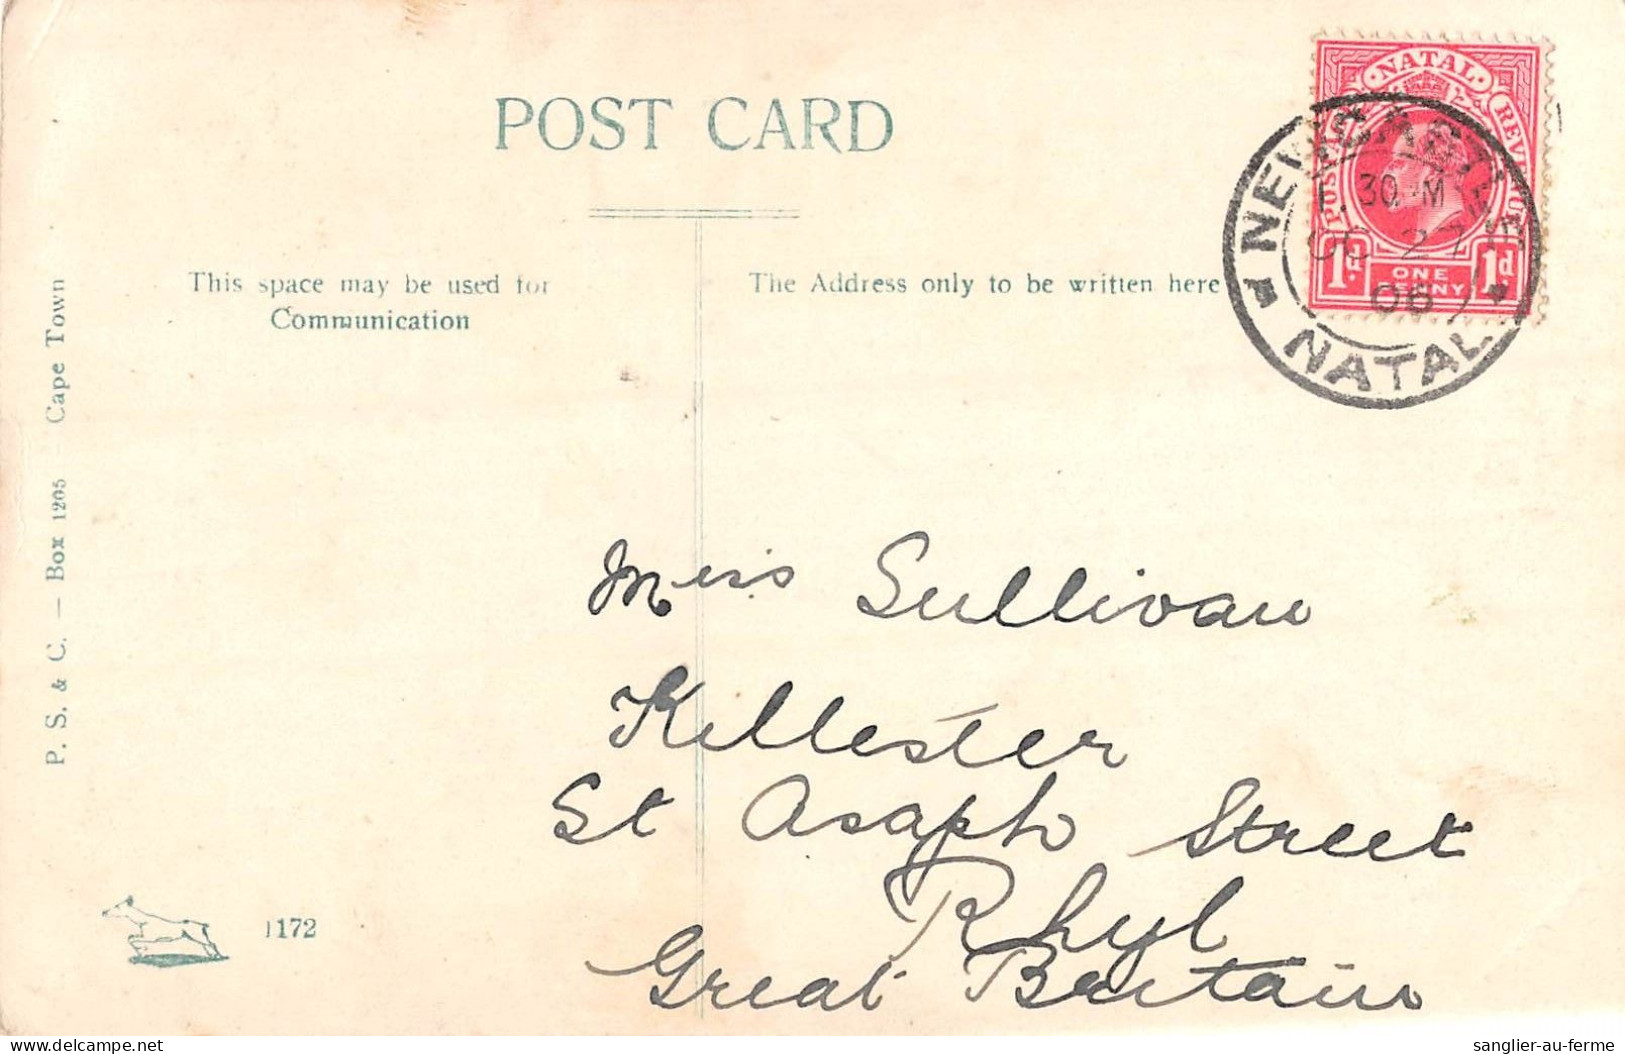 POST CARD
NATAL
POSTAGE REVENUE
1d ONE PENNY 1d
NEWCASTLE
1.30 M
OC 27
06
NATAL
This space may be used for
Communication
The Address only to be written here
P. S. & C. — Box 1205 — Cape Town
Miss Sullivan
Killester
St Asaph Street
Rhyl
Great Britain
1172
delcampe.net
sanglier-au-ferme